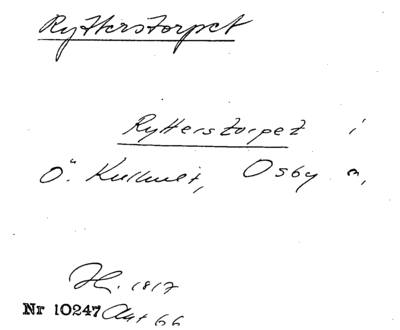 Rytterstorpet
Rytterstorpet i
Ö. Kullhult, Osby s,
Hl. 1817
Nr 10247 Akt 66